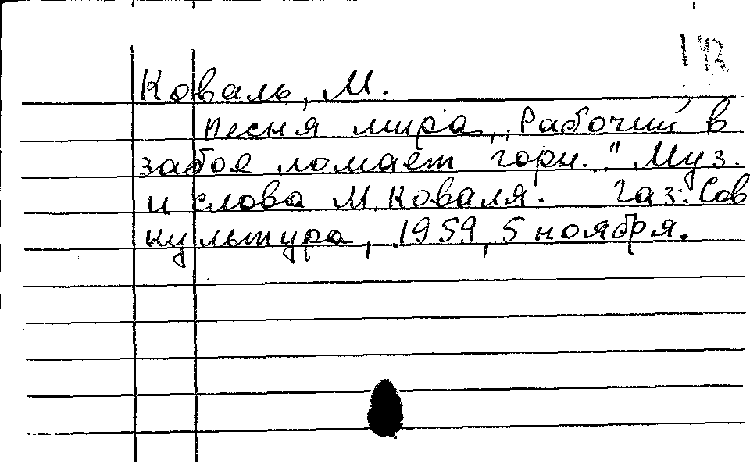 Коваль, М.
Песня мира „Рабочий в
забое ломает горы." Муз.
и слова М. Коваля. Газ. Сов
культура, 1959, 5 ноября.